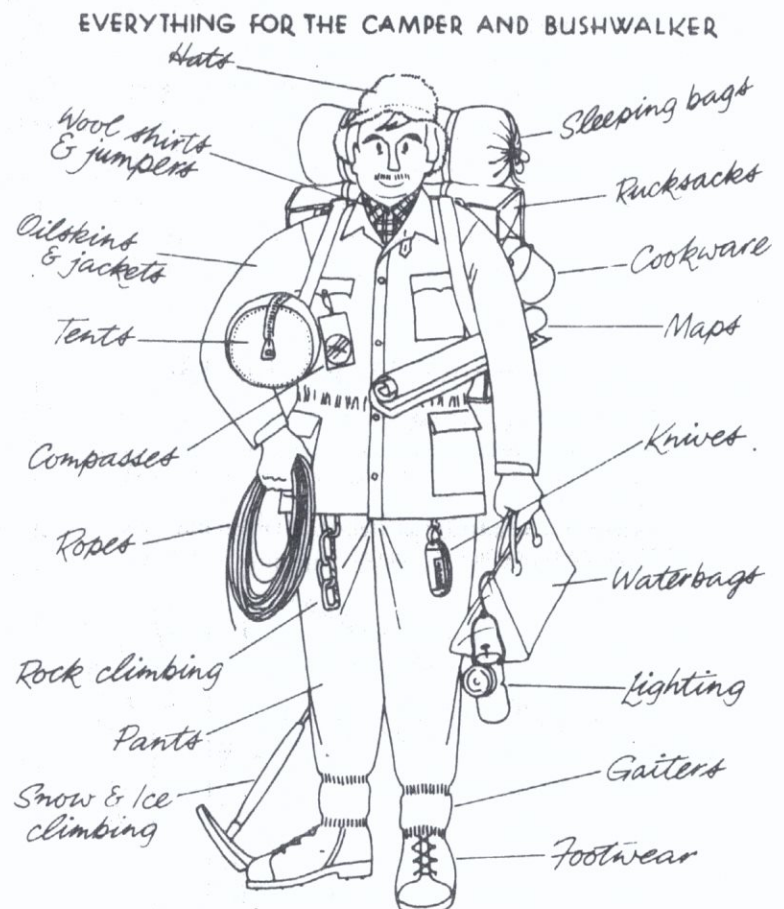 EVERYTHING FOR THE CAMPER AND BUSHWALKER
Hats
Wool shirts
& jumpers
Oilskins
& jackets
Tents
Compasses
Ropes
Rock climbing
Pants
Snow & Ice
climbing
Sleeping bags
Rucksacks
Cookware
Maps
Knives.
Waterbags
Lighting
Gaiters
Footwear